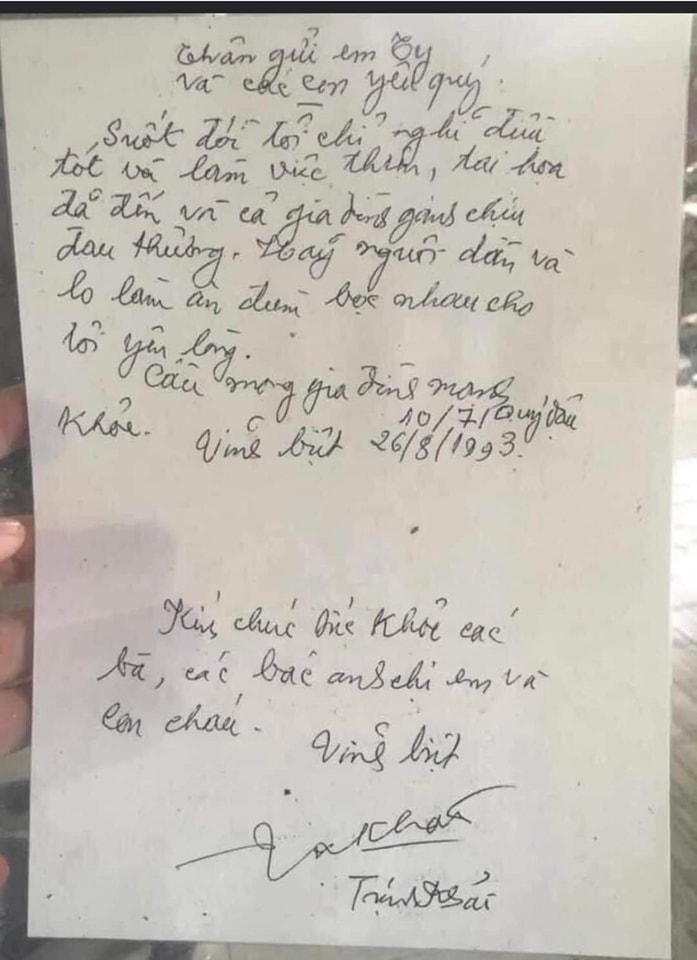 Thân gửi em Ty
và các con yêu quý.
Suốt đời tôi chỉ nghĩ điều
tốt và làm việc thiện, tai họa
đã đến và cả gia đình gánh chịu
đau thương. Hãy người dần và
lo làm ăn đùm bọc nhau cho
tôi yên lòng.
Cầu mong gia đình mạnh
khỏe. 10/7/Quý dậu
Vĩnh biệt 26/8/1993.
Kính chúc sức khỏe các
bà, các bác anh chị em và
con cháu.
Vĩnh biệt
Khải
Trịnh Khải